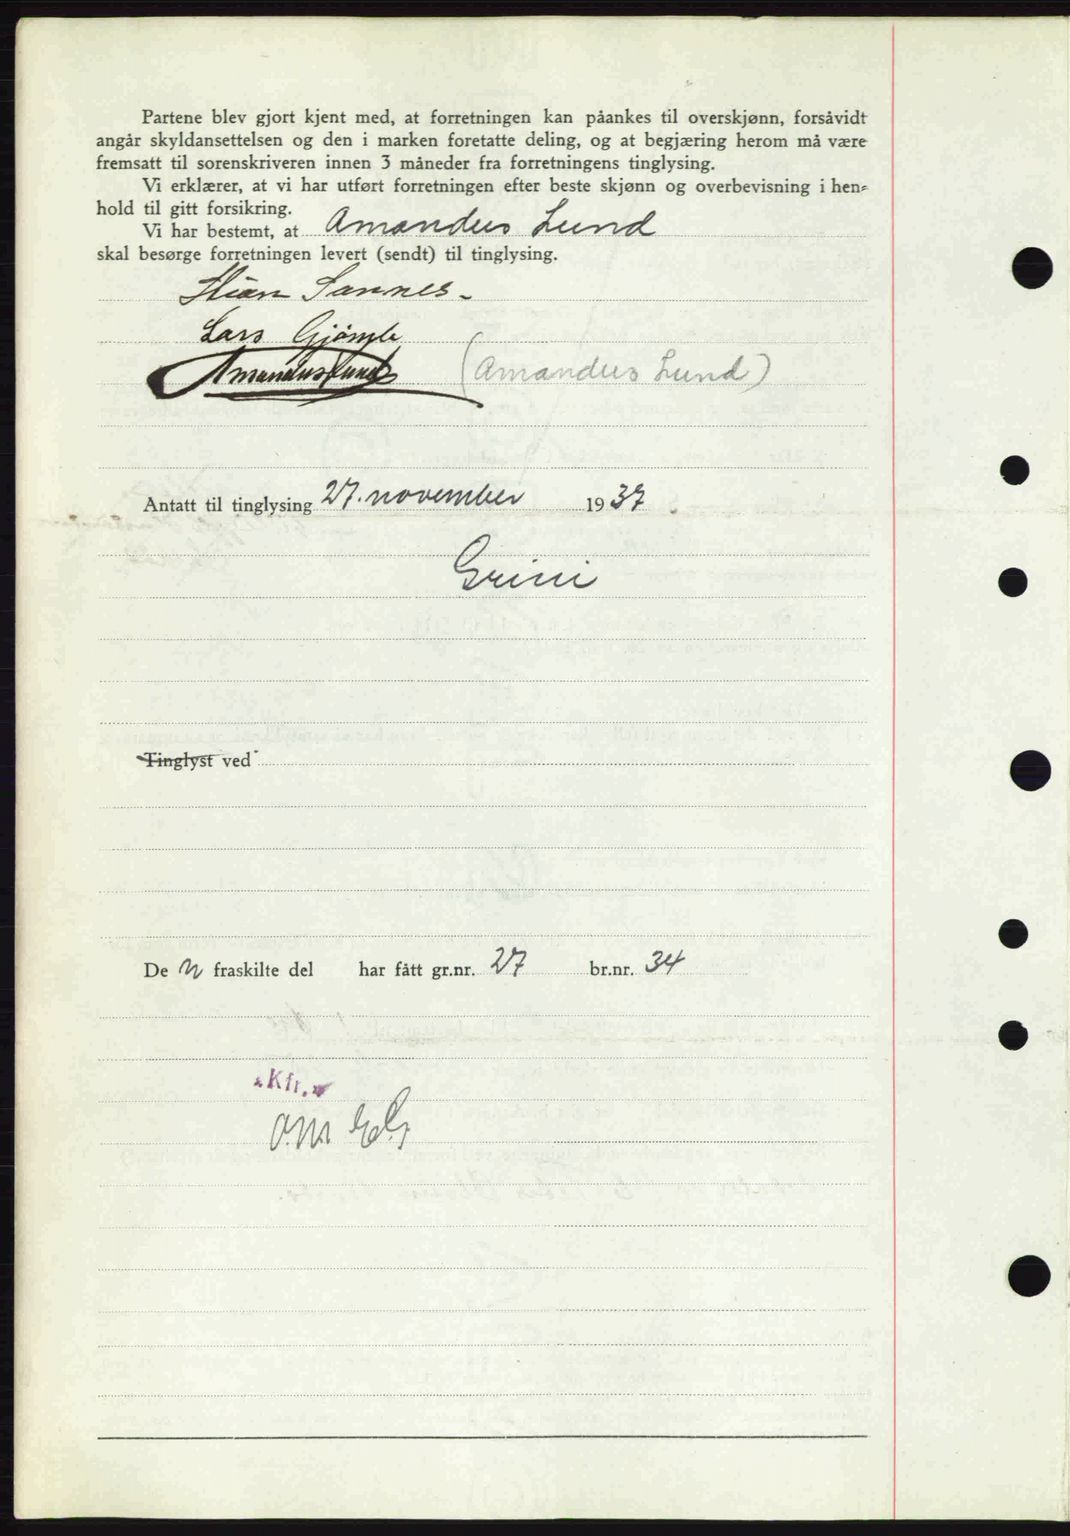 Partene blev gjort kjent med, at forretningen kan påankes til overskjønn, forsåvidt
angår skyldansettelsen og den i marken foretatte deling, og at begjæring herom må være
fremsatt til sorenskriveren innen 3 måneder fra forretningens tinglysing.
Vi erklærer, at vi har utført forretningen efter beste skjønn og overbevisning i hen-
hold til gitt forsikring.
Vi har bestemt, at Amandus Lund
skal besørge forretningen levert (sendt) til tinglysing.
Sannes
Lars
Amandus Lund (Amandus Lund)
Antatt til tinglysing 27. november 1937
Grini
Tinglyst ved
De n fraskilte del har fått gr.nr. 27 br.nr. 34
Kfr.